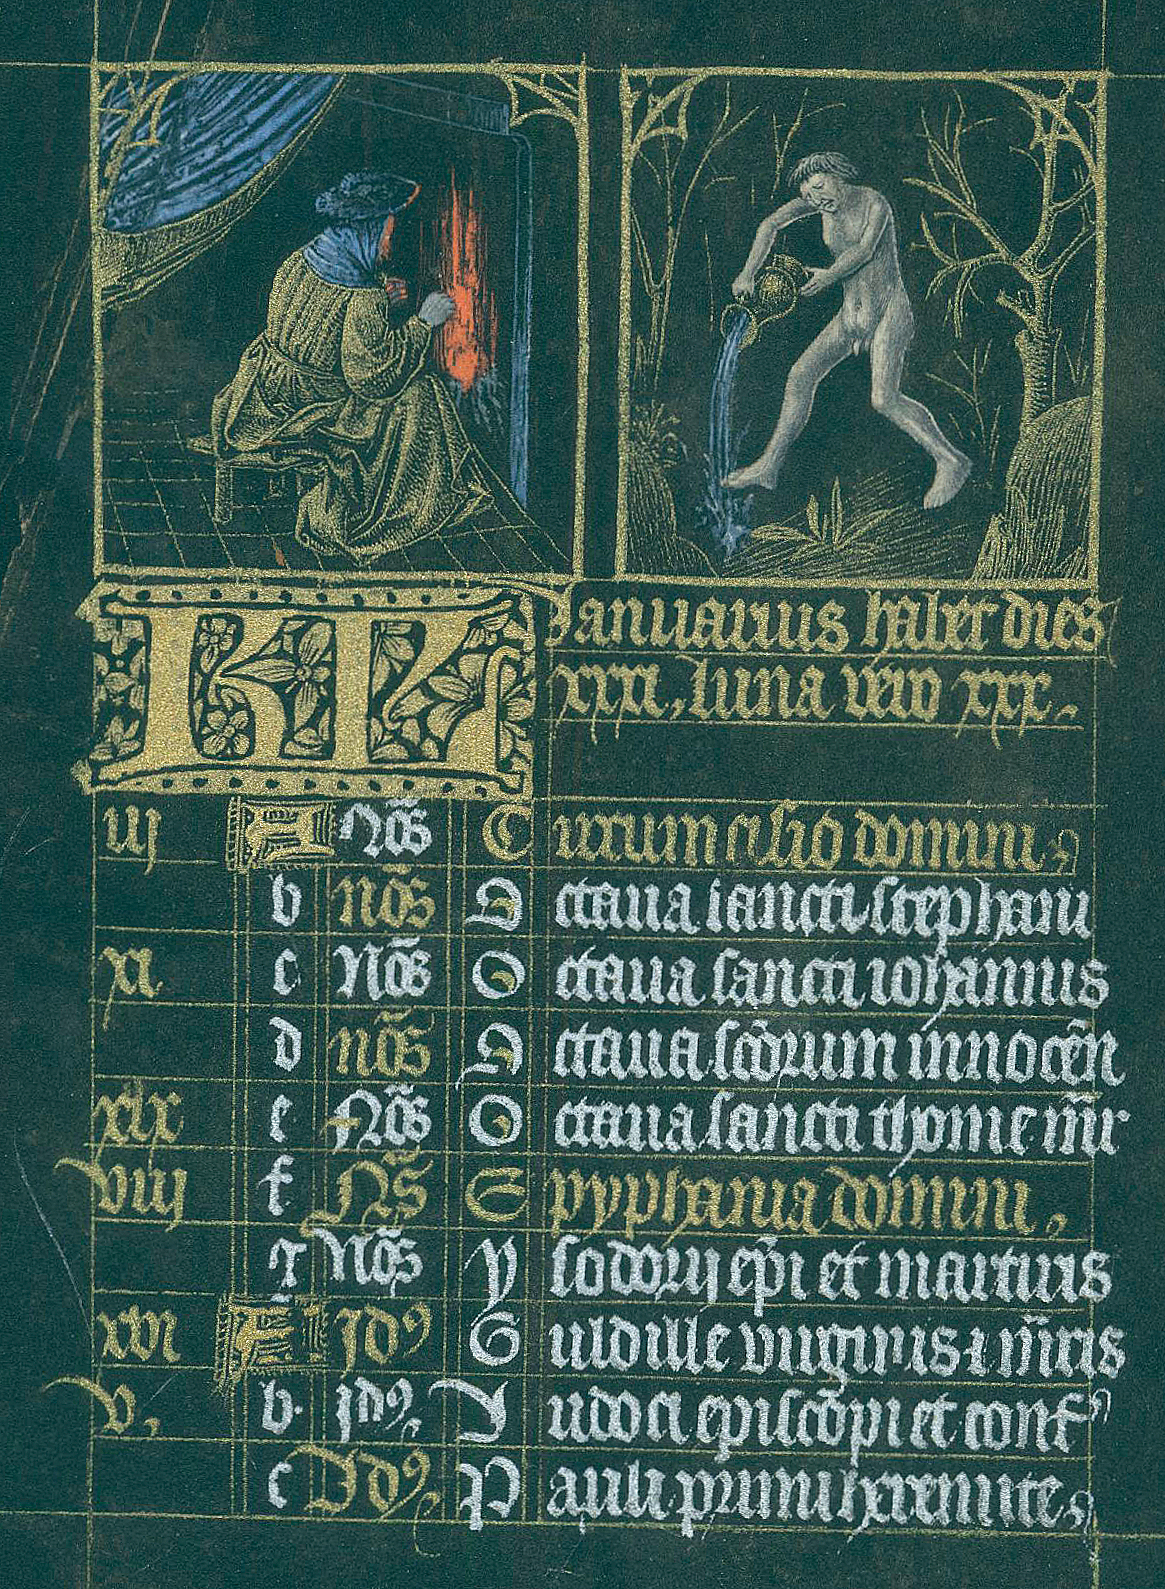 KL Januarius habet dies
xxxi, luna vero xxx.
iij A Nōs Circumcisio domini
b nōs Octava sancti stephani
xi c Nōs Octava sancti iohannis
d nōs Octava scōrum innocēn
xix e Nōs Octava sancti thome mr̄
viij f Ns̄ Epyphania domini
g Nōs Ysodorij ep̄i et martiris
xvi A Jdꝯ Guldille virginis ⁊ mr̄is
v, b. jdꝯ Judoci episcōpi et conf
c Jdꝯ Pauli primi heremite